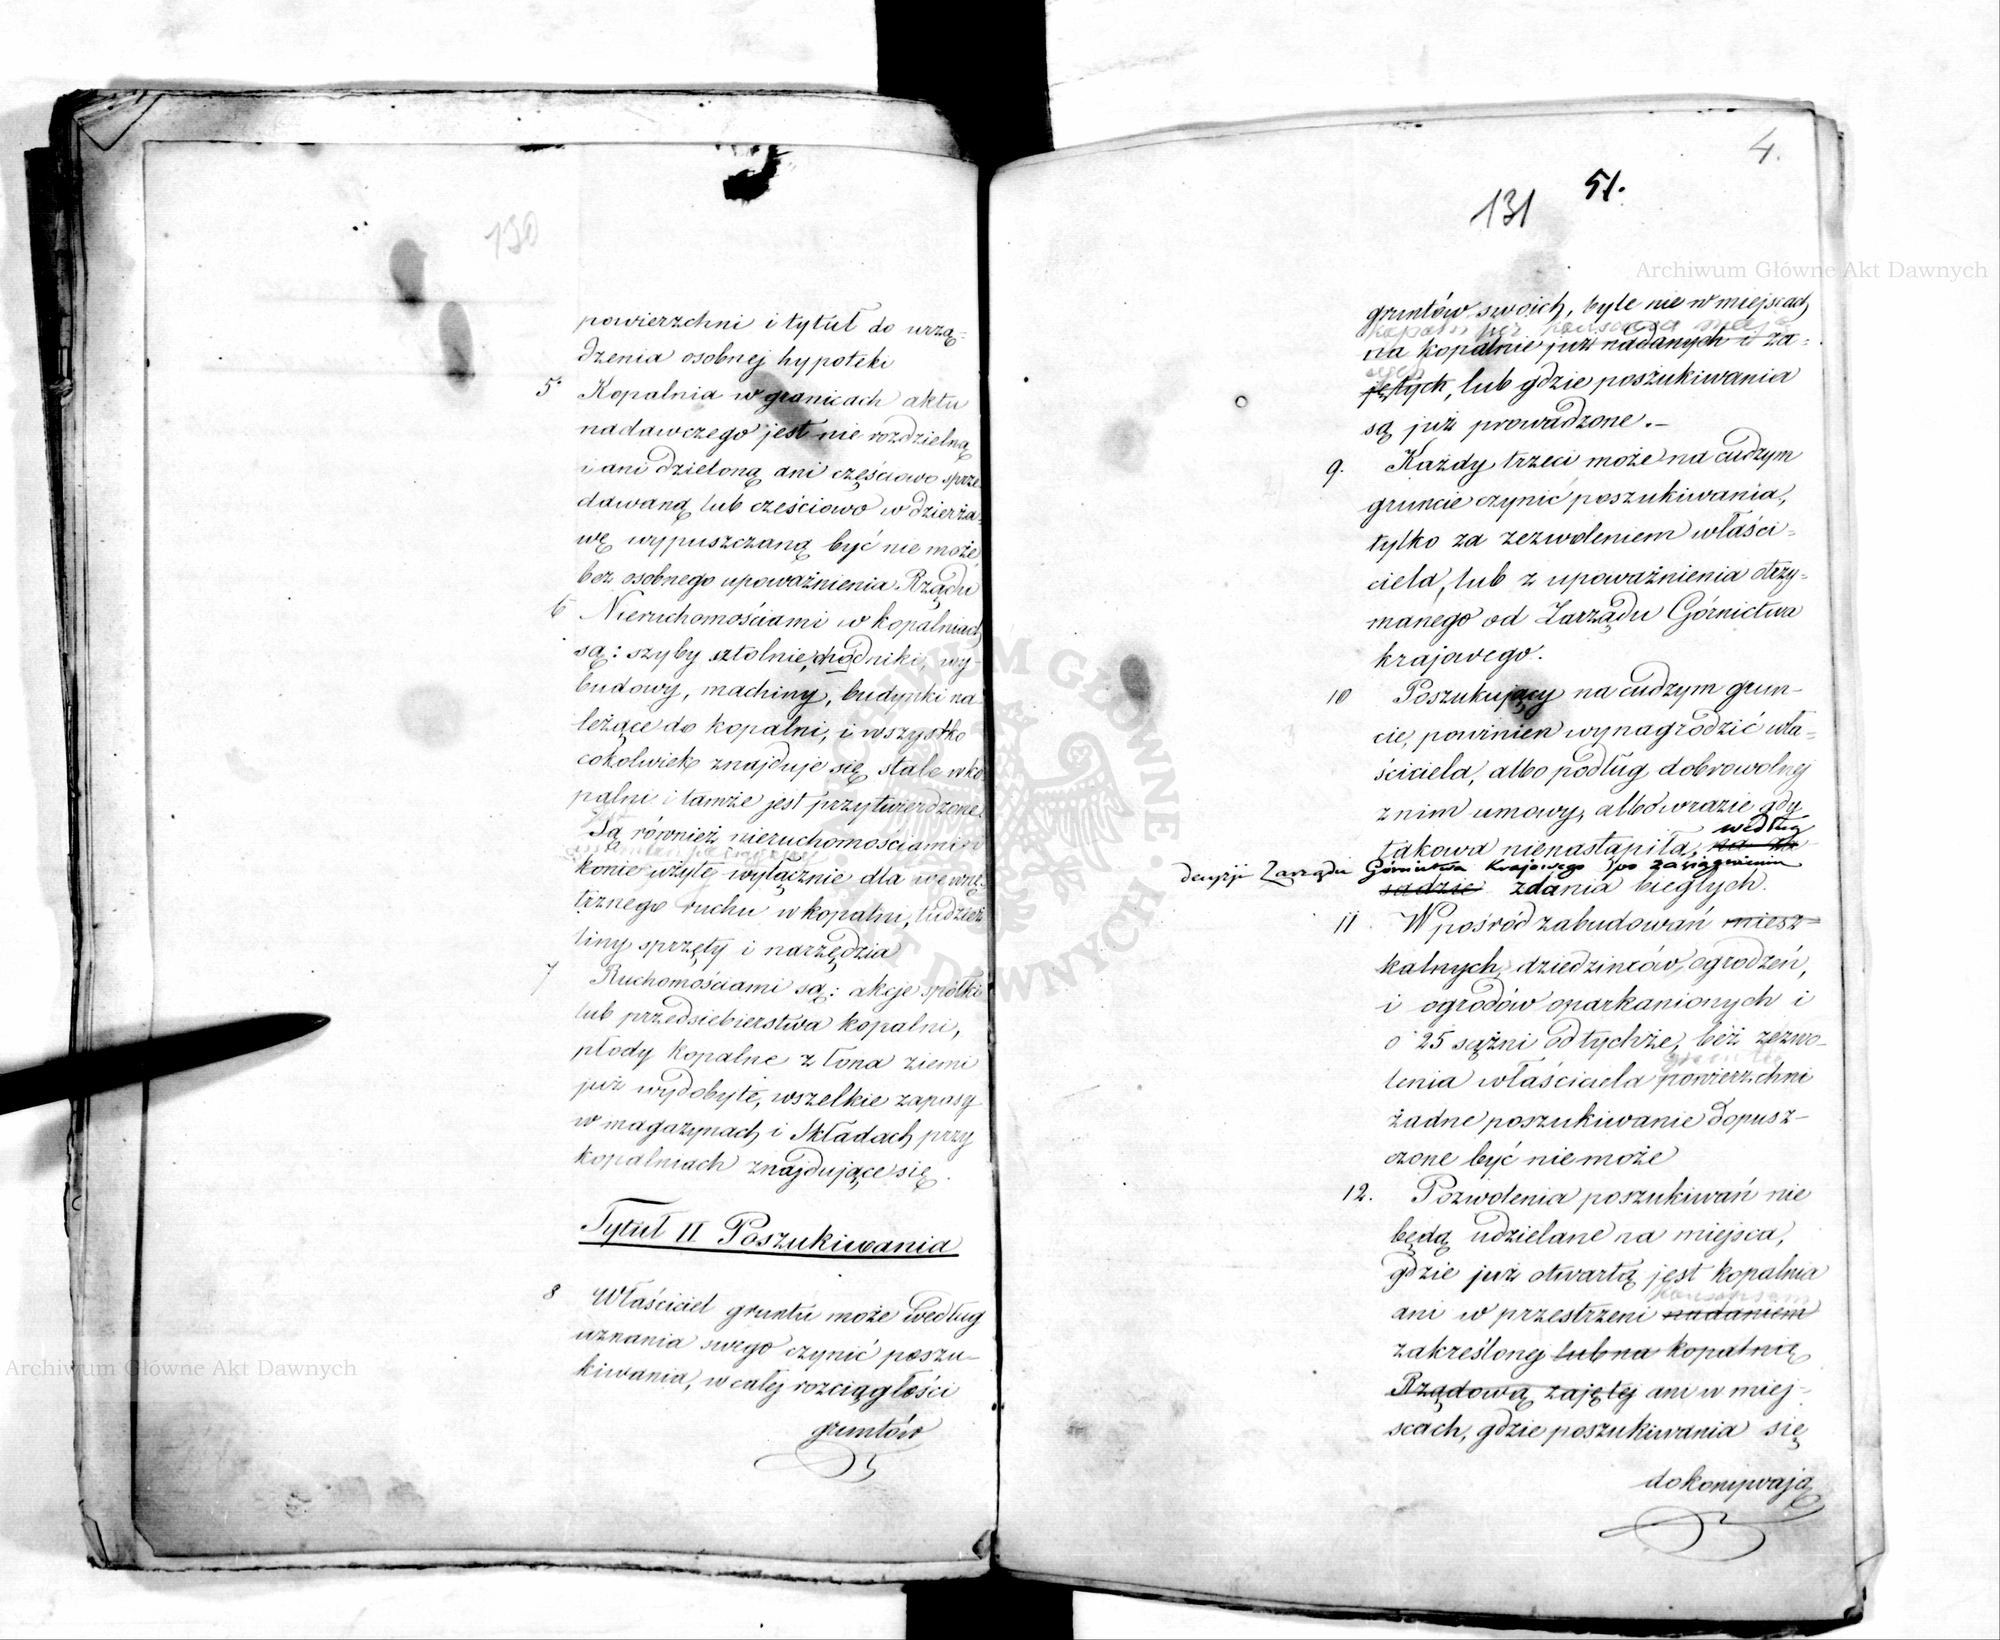 130
powierzchni i tytuł do urzą-
dzenia osobnej hypoteki
5 Kopalnia w granicach aktu
nadawczego jest nie rozdzielną
i ani dzieloną ani częściowo sprze
dawaną lub cześciowo w dzierża-
wę wypuszczaną być nie może
bez osobnego upoważnienia Rządu
6 Nieruchomościami w kopalniach
są: szyby sztolnie, chodniki, wy-
budowy, machiny, budynki na
leżące do kopalni, i wszystko
cokolwiek znajduje się stale w ko
palni i tamże jest przytwierdzone.
Są również nieruchomościami
konie użyte wyłącznie dla wewnę-
trznego ruchu w kopalni, tudzież
liny sprzęty i narzędzia
7 Ruchomościami są: akcje spółki
lub przedsiebierstwa kopalni,
płody kopalne z łona ziemi
już wydobyte, wszelkie zapasy
w magazynach i Składach przy
kopalniach znajdujące się.
Tytuł II Poszukiwania
8 Właściciel gruntu może według
uznania swego czynić poszu-
kiwania, w całej rozciągłości
gruntów
4.
51.
131
gruntów swoich, byle nie w miejscach
na kopalnie już nadanych i za-
jętych, lub gdzie poszukiwania
są już prowadzone.-
9. Każdy trzeci może na cudzym
gruncie czynić poszukiwania,
tylko za zezwoleniem właści-
ciela, lub z upoważnienia otrzy-
manego od Zarządu Górnictwa
krajowego.
10 Poszukujący na cudzym grun-
cie, powinien wynagrodzić wła-
ściciela, albo podług dobrowolnej
z nim umowy, albo w razie gdy
według
takowa nienastąpiła, na za
decyzji Zarządu Górnictwa Krajowego po zasiągnieniu
sadzie zdania biegłych.
11 W pośród zabudowań miesz-
kalnych, dziedzinców, ogrodzeń,
i ogrodów oparkanionych i
o 25 sążni od tychże, bez zezwo-
lenia właściciela powierzchni
żadne poszukiwanie dopusz-
czone być nie może
12. Pozwolenia poszukiwań nie
będą udzielane na miejsca,
gdzie już otwartą jest kopalnia
ani w przestrzeni nadaniem
zakreślonej lub na kopalnię
Rządową zajętej ani w miej-
scach, gdzie poszukiwania się
dokonywają
Archiwum Główne Akt Dawnych
Archiwum Główne Akt Dawnych
ARCHIWUM GŁÓWNE AKT DAWNYCH